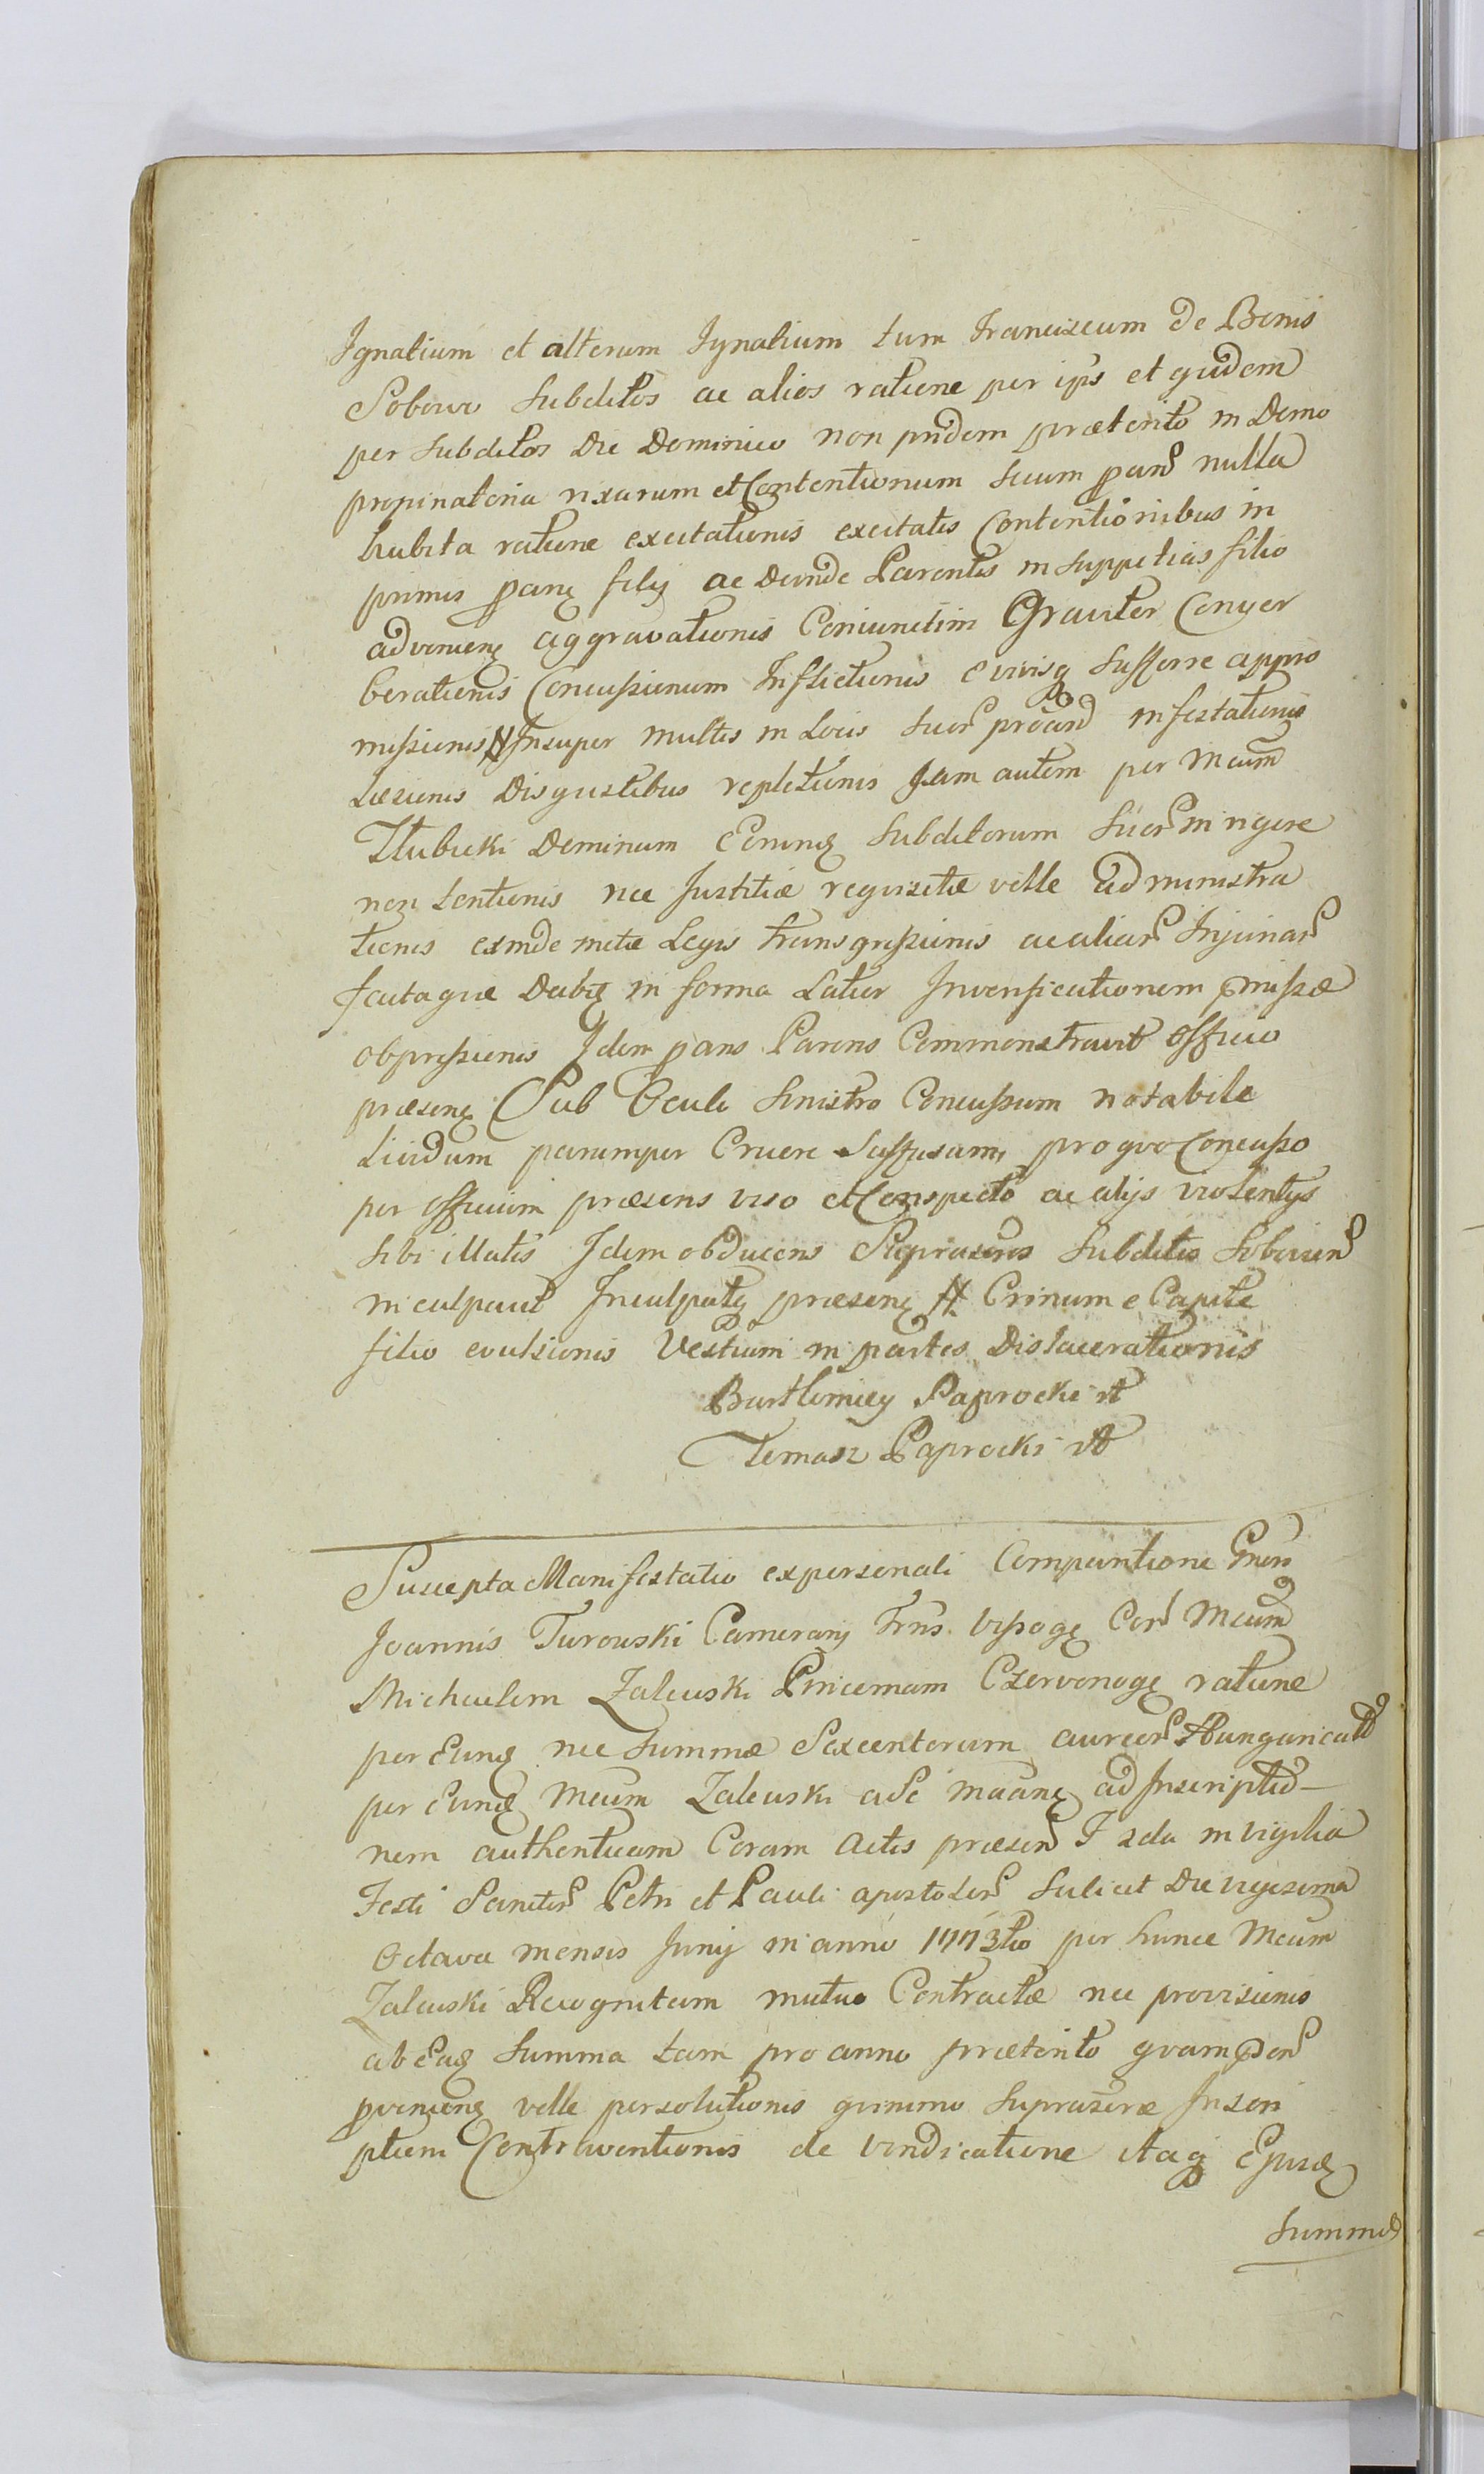 Ignatium et alterum Ignatium tum Franciscum de Bonis
Sobowo Subditos ac alios ratione per ips et quidem
per Subditos Die Dominico non pridem præterito in Domo
propinatoria rixarum et Contentionum Secum pans nulla
habita ratione excitationis excitatis Contentionibus in
primis pane filij ac deinde Parentis in Suppetias filio
advenien aggravationis Coniunctim Graviter Conver
berationis Concussionum Inflictionis e vivisq Sufferre appro
missionis # Insuper multis in Locis Suer procand infestationis
Læsionis Disgustibus repletionis Jam autem per Mcum
Tłubicki Dominum Eorund Subditorum Suor mingere
non Lentionis nec Justitiæ requisitæ velle administra
tionis exinde metæ Legis transgressionis ac aliar Injuriar
Itaque Debite in forma Latior Inversificationem pmissæ
obpressionis Idem pans Parens Commonstravit Officio
præsen Sub Oculo Sinistro Concussum notabile
Lividum parumper Cruere Suffusum, pro quo Concusso
per Officium præsens viso et Conspecto ac alijs violentijs
Sibi illatis Idem obducens Supraseros Subditos Sobovien
inculpavit Inculpatq præsen # Crinum e Capite
filio evulsionis Vestium in partes Dislacerationis
Bartłomiey Paprocki
Tomasz Paprocki
Suscepta Manifestatio ex personali Comparitione Gnen
Joannis Turowski Camerarij Trns Vissoge Cor Mcum
Michaelem Zalewski Pincernam Czervonoge ratione
per Eund nec Summæ Sexcentorum aureor Hungaricall
per Eund Mcum Zalewski adSe ad Inscriptio-
nem authenticam Coram Actis præsen F 2da in vigilia
Festi Sanctor Petri et Pauli apostolor Scilicet Die vigesima
Octava mensis Junij in anno 1773tio per hunce Mcum
Zalewski Recognitam mutuo Contractæ nec provisionis
ab Ead Summa tam pro anno præterito quam pden
provenien velle persolutionis quinimo Supraseræ Inscri
ptioni Contraventionis de vindicatione itaq Ejusd
Summæ